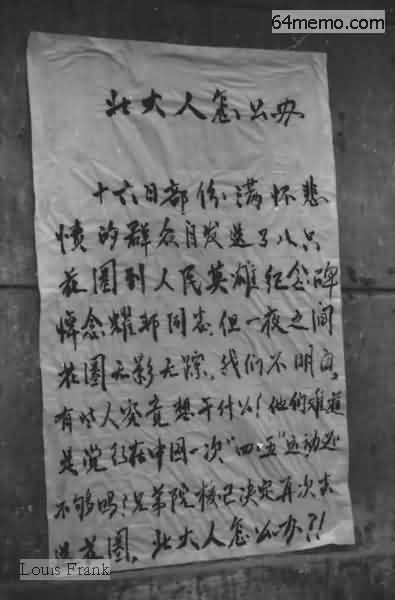 64memo.com
北大人怎么办
十六日部份满怀悲
愤的群众自发送了八只
花圈到人民英雄纪念碑
悼念耀邦同志.但一夜之间
花圈无影无踪。我们不明白,
有些人究竟想干什么!他们难道
是觉得在中国一次"四五"运动还
不够吗?兄弟院校已决定再次去
送花圈,北大人怎么办?!
Louis Frank